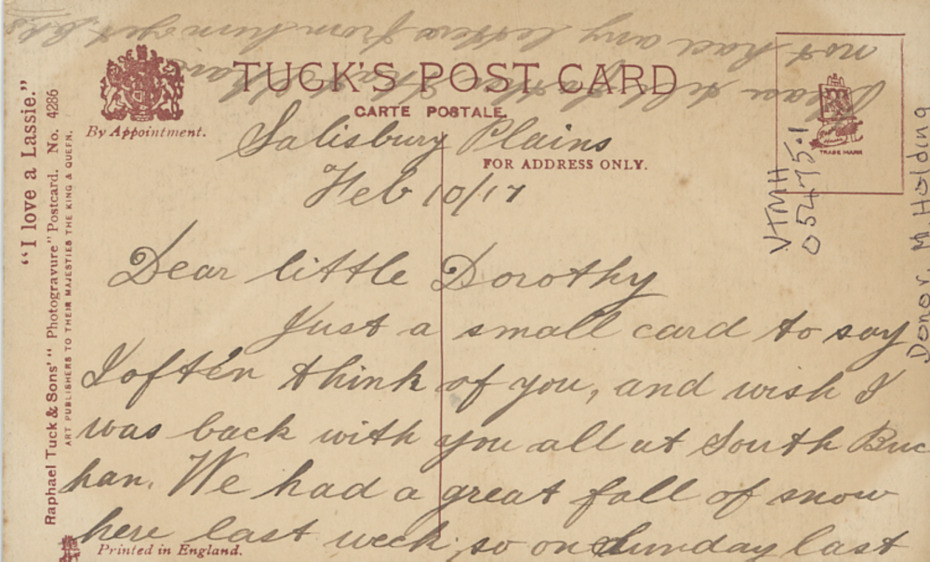 TUCK'S POST CARD
CARTE POSTALE.
By Appointment.
FOR ADDRESS ONLY.
TRADE MARK
Salisbury Plains
Feb 10/17
Dear little Dorothy
Just a small card to say
I often think of you, and wish I
was back with you all at South Buc
han. We had a great fall of snow
here last week, so on Sunday last
Printed in England.
Please tell that I have
not had any letters from him yet.
"I love a Lassie."
Raphael Tuck & Sons' "Photogravure" Postcard. No. 4286
ART PUBLISHERS TO THEIR MAJESTIES THE KING & QUEEN.
VTMH
05475.1
Donor, M Holding